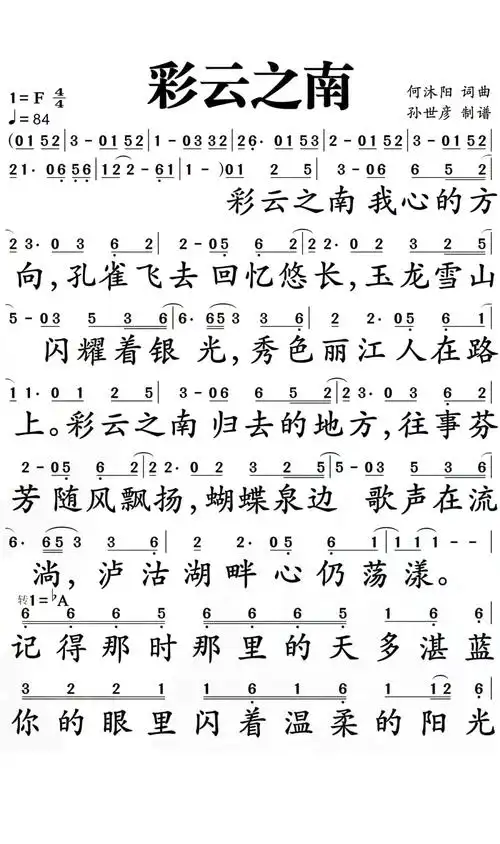 彩云之南
1=F 4/4
♩=84
何沐阳 词曲
孙世彦 制谱
(0152|3-0152|1-0332|26·0153|2-0152|3-0152|
21·0656|122-61|1-)01 2 5|3-06 6 5 2|
彩云之南 我心的方
23·0 3 6 2|2-05 6 2 2·|0 2 3 2 5|
向,孔雀飞去 回忆悠长,玉龙雪山
5-03 5 3 6|6·653 3 6 2|2·2·05 6 1|
闪耀着银 光,秀色丽江人在路
11·0 1 2 5|3-06 6 5 2|23·0 3 6 2|
上。彩云之南 归去的地方,往事芬
2-05 6 2 2·|0 2 3 2 5|5-03 5 3 6|
芳 随风飘扬,蝴蝶泉边 歌声在流
6·653 3 6 2|2·2·05 6 1|1-1-|1--|
淌,泸沽湖畔心仍荡漾。
转1=♭A
6 6 6 6 5|1 6 6 6 5 6|
记得那时那里的天多湛蓝
3 2 2 1|2 2 1 6 1 6|1 12 6|
你的眼里闪着温柔的阳光